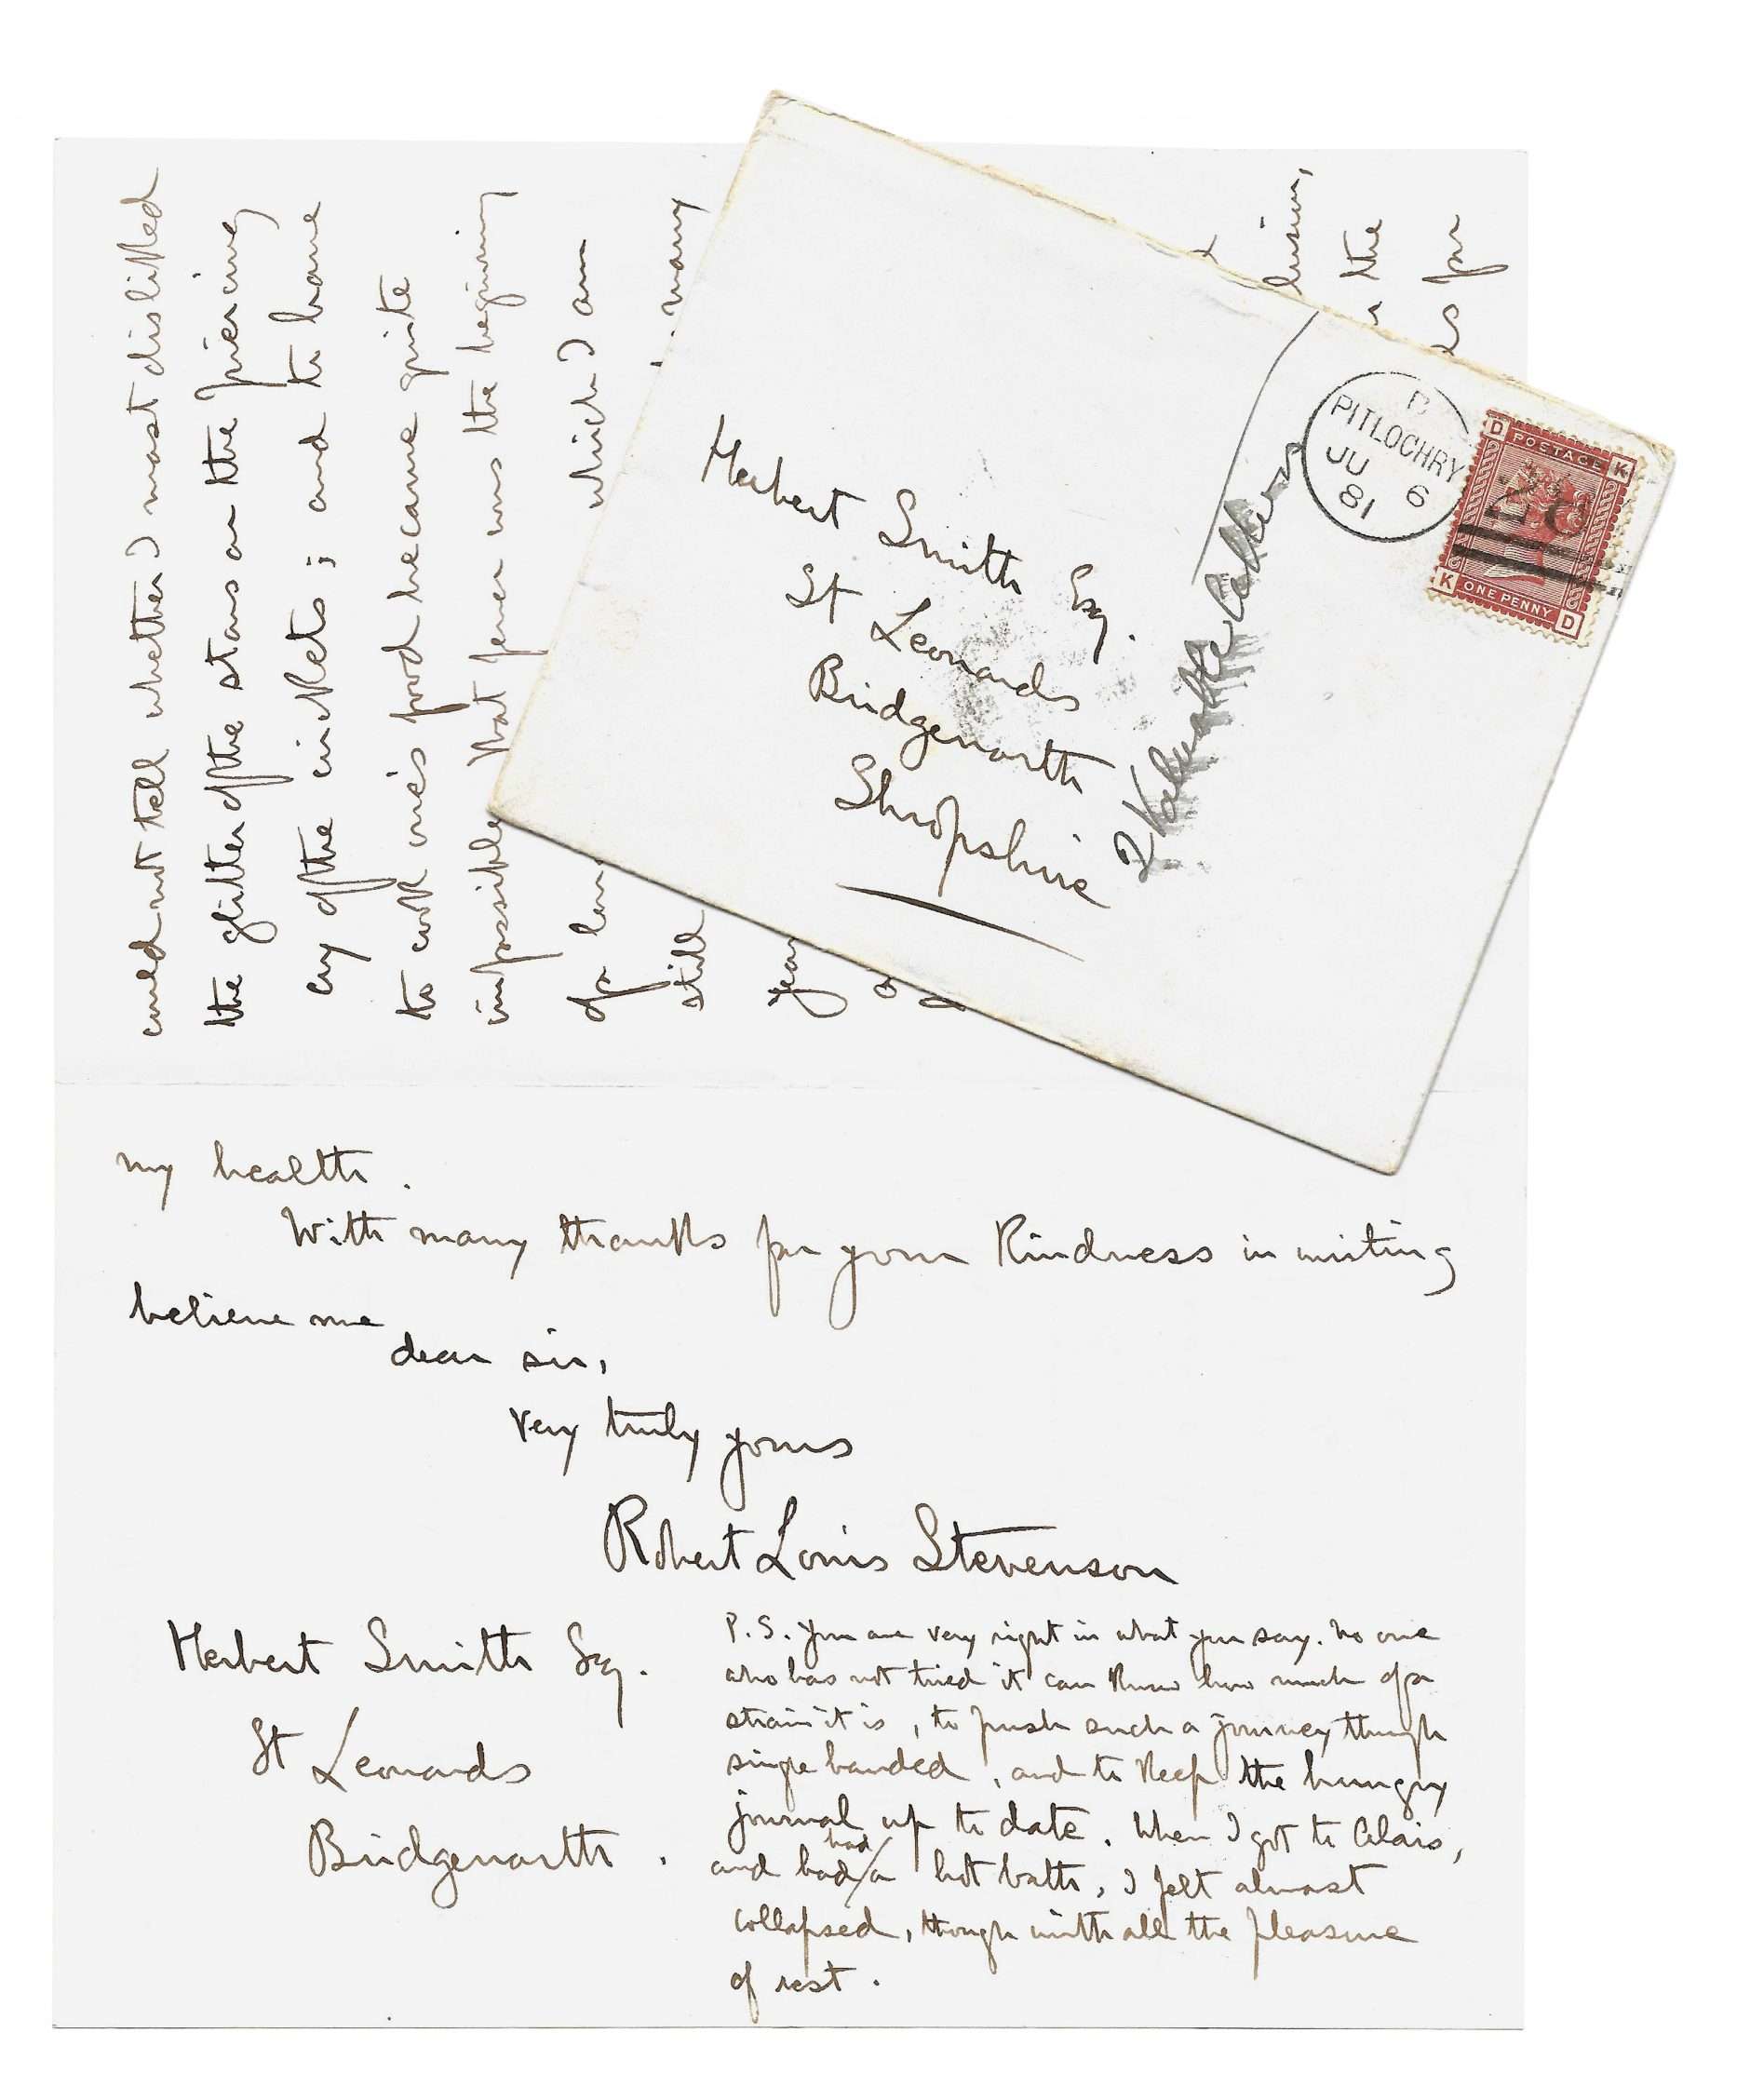 could not tell whether I most disliked
the glitter of the stars or the piercing
cry of the crickets; and to have
to cook one's food became quite
impossible. That fever was the beginning
of a
which I am
still
many
year
the
for
Herbert Smith Esq.
St Leonards
Bridgenorth
Shropshire
2 Valuable Letters
PITLOCHRY
JU 6
81
D POSTAGE K
K ONE PENNY D
my health.
With many thanks for your kindness in writing
believe me
dear sir,
very truly yours
Robert Louis Stevenson
Herbert Smith Esq.
St Leonards
Bridgenorth.
P.S. You are very right in what you say. No one
who has not tried it can know how much of a
strain it is, to push such a journey through
single handed, and to keep the hungry
journal up to date. When I got to Alais,
and had had a hot bath, I felt almost
collapsed, though with all the pleasure
of rest.